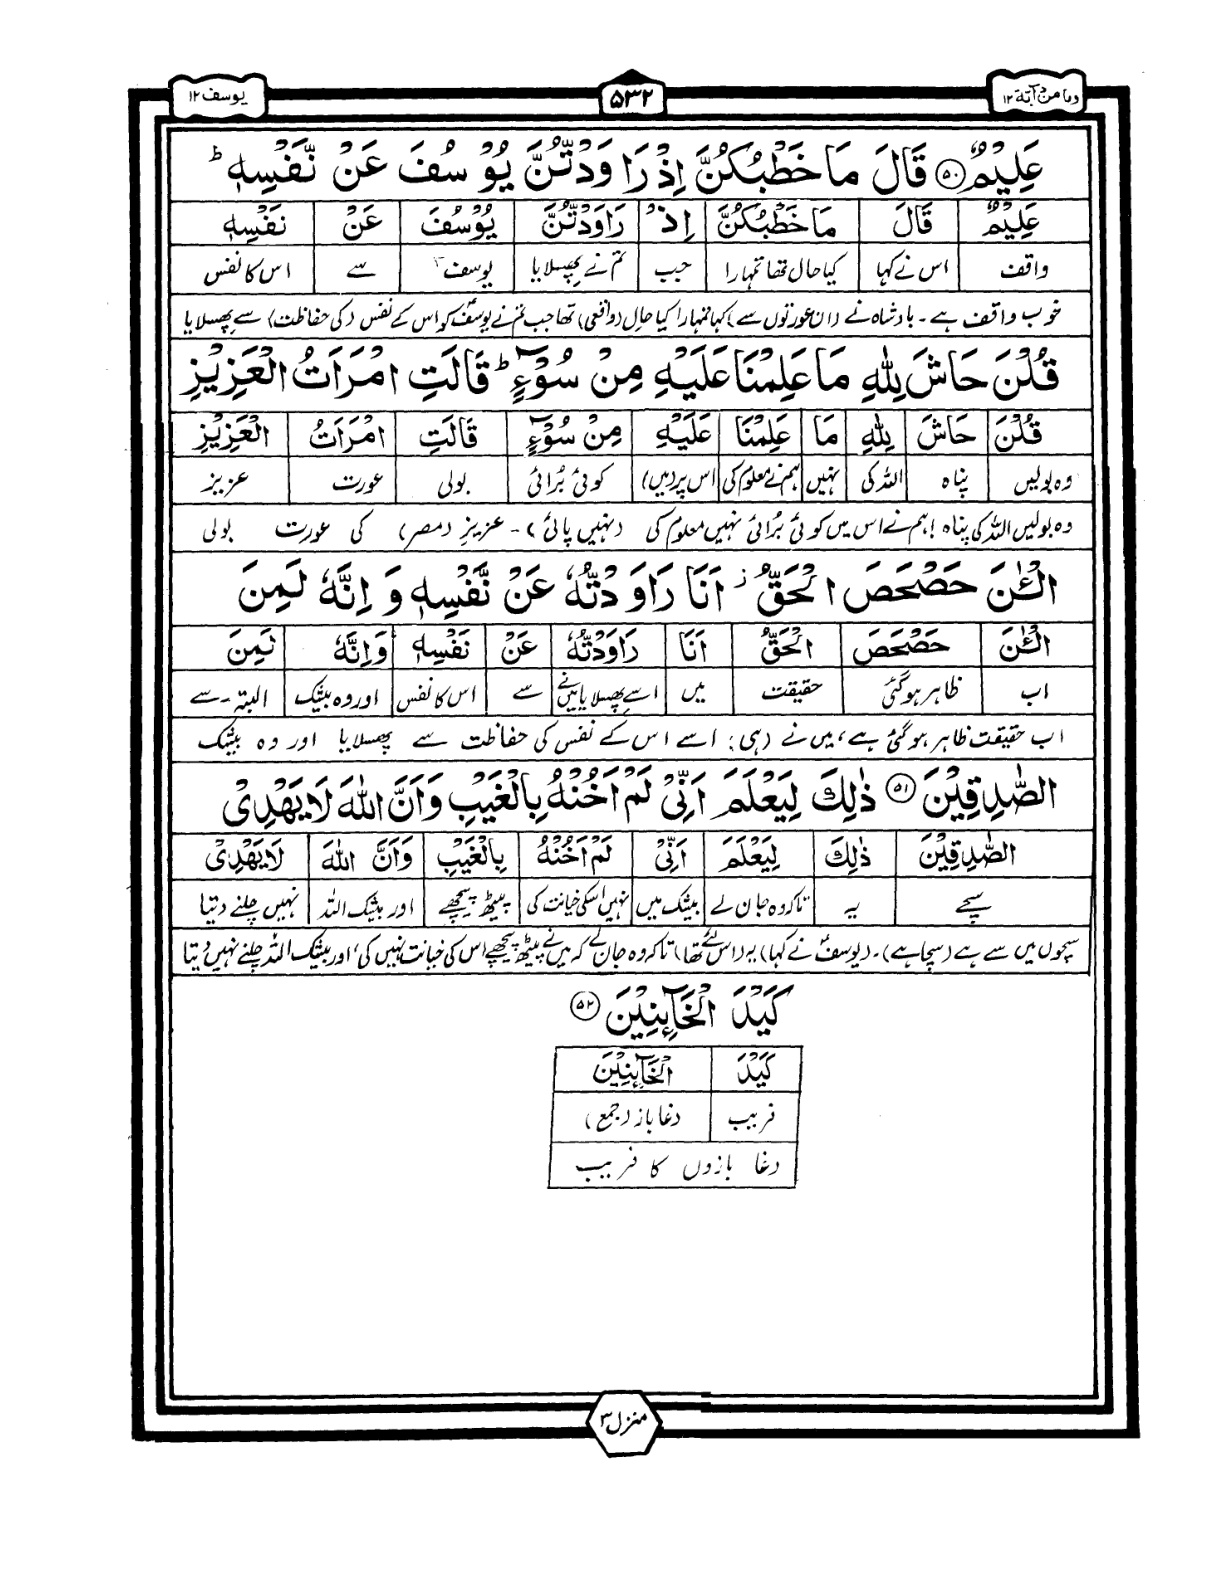 وما من دآبة ۱۲
۵۳۲
یوسف ۱۲
عَلِيْمٌ ۝۵۰ قَالَ مَا خَطْبُكُنَّ اِذْ رَاوَدْتُّنَّ يُوْسُفَ عَنْ نَّفْسِهٖ ؕ
عَلِيْمٌ قَالَ مَا خَطْبُكُنَّ اِذْ رَاوَدْتُّنَّ يُوْسُفَ عَنْ نَفْسِهٖ
واقف اس نے کہا کیا حال تھا تمہارا جب تم نے پھسلایا یوسفؑ سے اس کا نفس
خوب واقف ہے۔ بادشاہ نے (ان عورتوں سے) کہا تمہارا کیا حال (واقعی) تھا جب تم نے یوسفؑ کو اس کے نفس (کی حفاظت) سے پھسلایا
قُلْنَ حَاشَ لِلّٰهِ مَا عَلِمْنَا عَلَيْهِ مِنْ سُوْٓءٍ ؕ قَالَتِ امْرَاَتُ الْعَزِيْزِ
قُلْنَ حَاشَ لِلّٰهِ مَا عَلِمْنَا عَلَيْهِ مِنْ سُوْٓءٍ قَالَتِ امْرَاَتُ الْعَزِيْزِ
وہ بولیں پناہ اللہ کی نہیں ہم نے معلوم کی اس پر (میں) کوئی بُرائی بولی عورت عزیز
وہ بولیں اللہ کی پناہ! ہم نے اس میں کوئی بُرائی نہیں معلوم کی (نہیں پائی)۔ عزیزِ (مصر) کی عورت بولی
الْـٰٔنَ حَصْحَصَ الْحَقُّ ز اَنَا رَاوَدْتُّهٗ عَنْ نَّفْسِهٖ وَ اِنَّهٗ لَمِنَ
الْـٰٔنَ حَصْحَصَ الْحَقُّ اَنَا رَاوَدْتُّهٗ عَنْ نَفْسِهٖ وَاِنَّهٗ لَمِنَ
اب ظاہر ہوگئی حقیقت میں اسے پھسلایا میں نے سے اس کا نفس اور وہ بیشک البتہ۔ سے
اب حقیقت ظاہر ہوگئی ہے، میں نے (ہی) اسے اس کے نفس کی حفاظت سے پھسلایا اور وہ بیشک
الصّٰدِقِيْنَ ۝۵۱ ذٰلِكَ لِيَعْلَمَ اَنِّىْ لَمْ اَخُنْهُ بِالْغَيْبِ وَاَنَّ اللّٰهَ لَا يَهْدِىْ
الصّٰدِقِيْنَ ذٰلِكَ لِيَعْلَمَ اَنِّىْ لَمْ اَخُنْهُ بِالْغَيْبِ وَاَنَّ اللّٰهَ لَا يَهْدِىْ
سچے یہ تاکہ وہ جان لے بیشک میں نہیں اسکی خیانت کی پیٹھ پیچھے اور بیشک اللہ نہیں چلنے دیتا
سچوں میں سے ہے (سچا ہے)۔ (یوسفؑ نے کہا) یہ (اس لئے تھا) تاکہ وہ جان لے کہ میں نے پیٹھ پیچھے اس کی خیانت نہیں کی، اور بیشک اللہ چلنے نہیں دیتا
كَيْدَ الْخَآئِنِيْنَ ۝۵۲
كَيْدَ الْخَآئِنِيْنَ
فریب دغا باز (جمع)
دغا بازوں کا فریب
منزل ۳